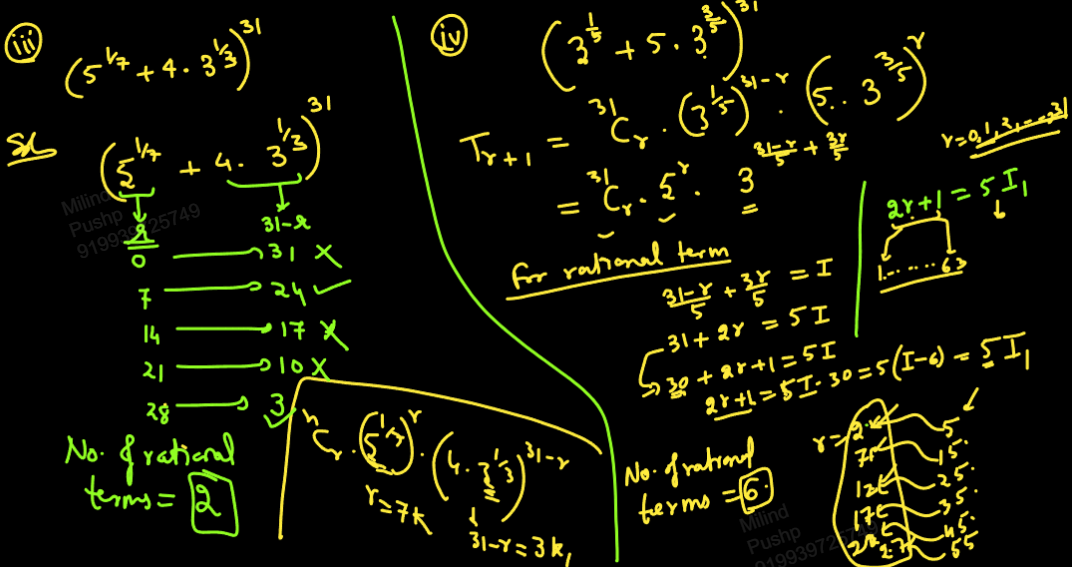 iii
(5^{1/7} + 4 · 3^{1/3})^{31}
Sol
(5^{1/7} + 4 · 3^{1/3})^{31}
r 31-r
0 → 31 ✗
7 → 24 ✓
14 → 17 ✗
21 → 10 ✗
28 → 3 ✓
No. of rational
terms = 2
^nC_r · (5^{1/7})^r · (4 · 3^{1/3})^{31-r}
r = 7k
31-r = 3k_1
iv
(3^{1/5} + 5 · 3^{3/5})^{31}
T_{r+1} = ^{31}C_r · (3^{1/5})^{31-r} · (5 · · 3^{3/5})^r
r = 0, 1, 2, ---, 31
= ^{31}C_r · 5^r · 3^{\frac{31-r}{5} + \frac{3r}{5}}
for rational term
\frac{31-r}{5} + \frac{3r}{5} = I
31 + 2r = 5I
30 + 2r + 1 = 5I
2r + 1 = 5I - 30 = 5(I-6) = 5I_1
2r + 1 = 5I_1
1 ...... 63
r = 2 5
7 15
12 25
17 35
22 45
27 55
No. of rational
terms = 6
Milind
Pushp
919939725749
Milind
Pushp
919939725749